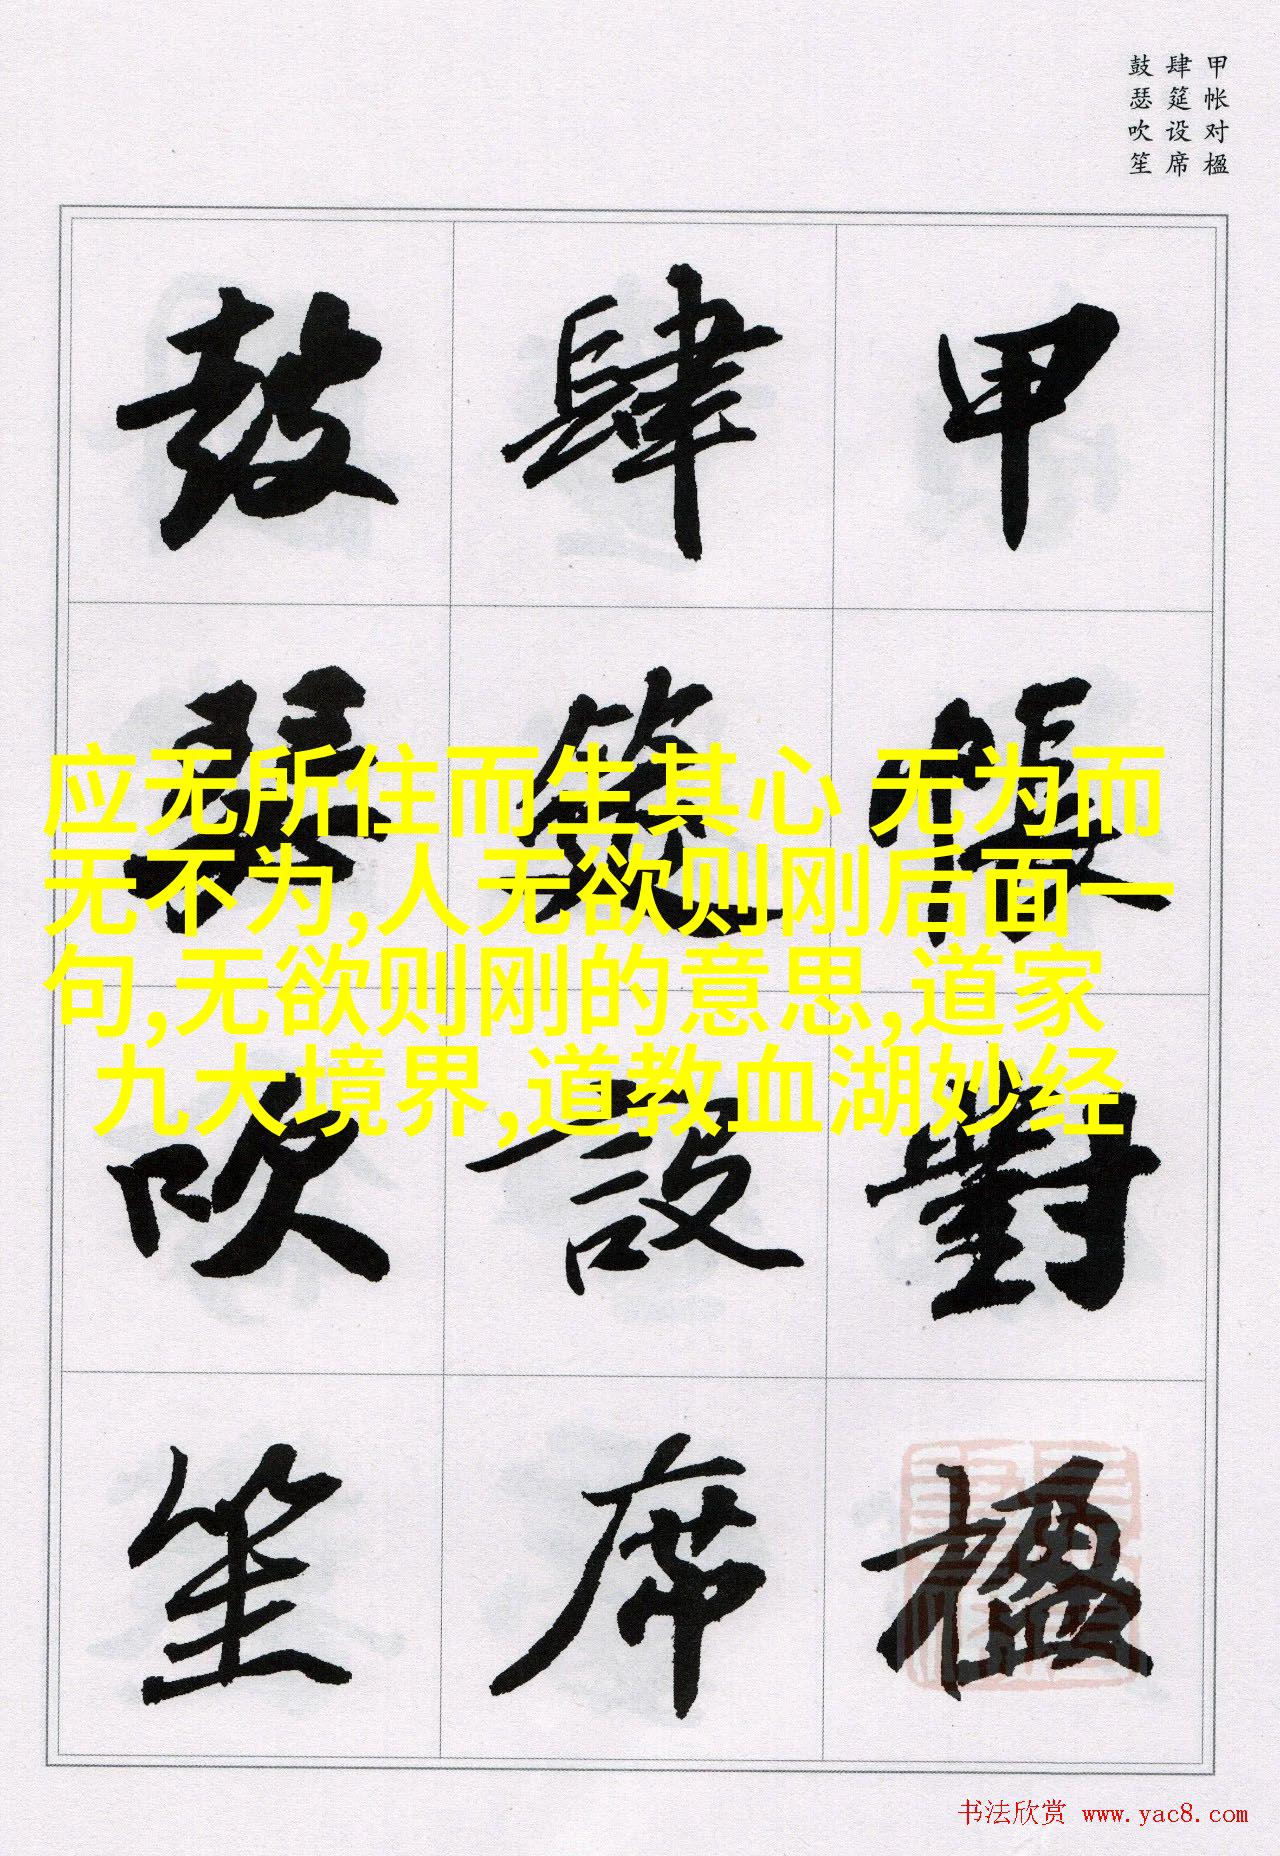 甲帐对楹
肆筵设席
鼓瑟吹笙
甲帳對楹
肆筵設席
鼓瑟吹笙
应无所住而生其心 无为而
无不为,人无欲则刚后面一
句,无欲则刚的意思,道家
九大境界,道教血湖妙经
书法欣赏 www.yac8.com